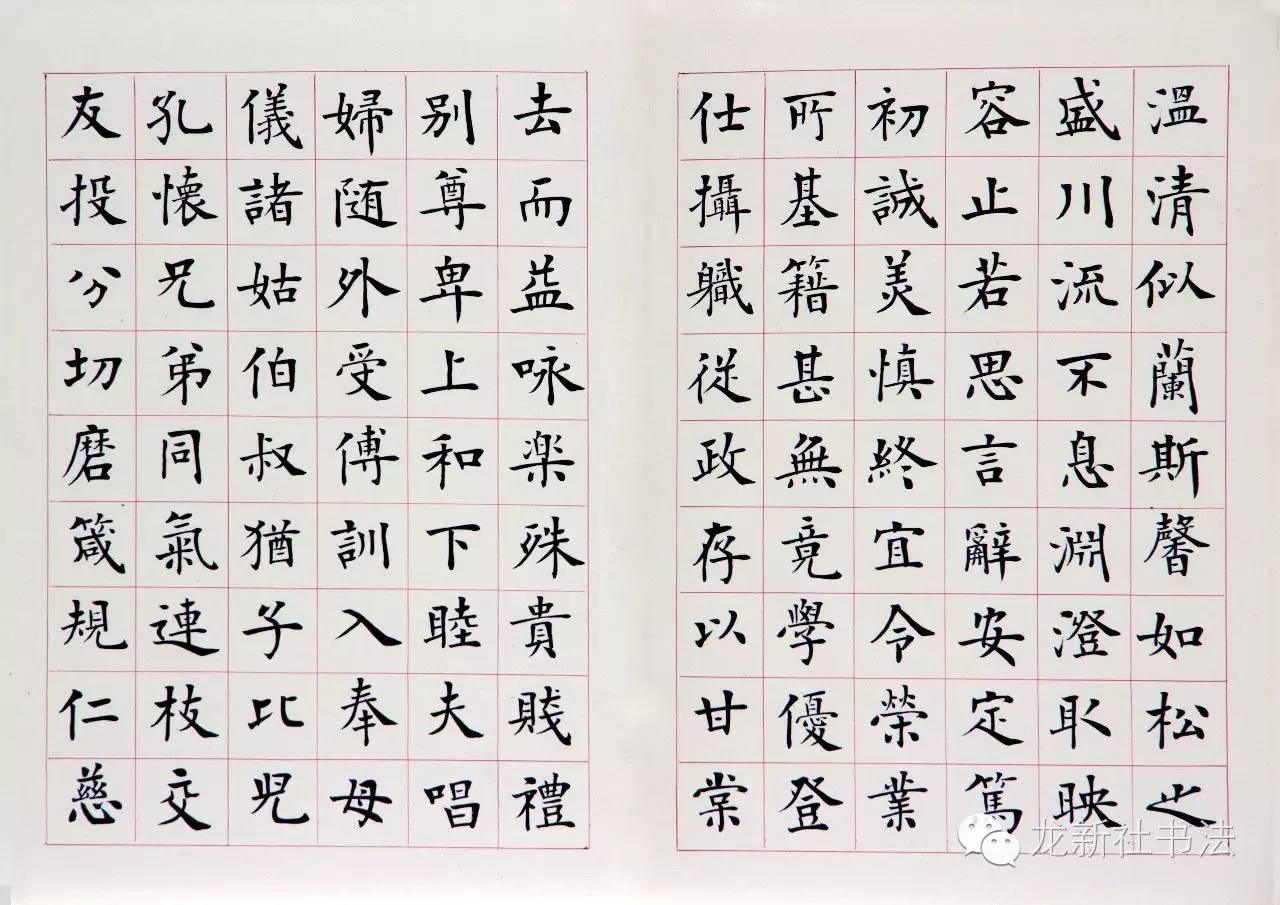 溫清似蘭斯馨如松之
盛川流不息淵澄取映
容止若思言辭安定篤
初誠美慎終宜令榮業
所基籍甚無竟學優登
仕攝職從政存以甘棠
去而益咏楽殊貴賤禮
別尊卑上和下睦夫唱
婦随外受傅訓入奉母
儀諸姑伯叔猶子比兒
孔懷兄弟同氣連枝交
友投分切磨箴規仁慈
龙新社书法